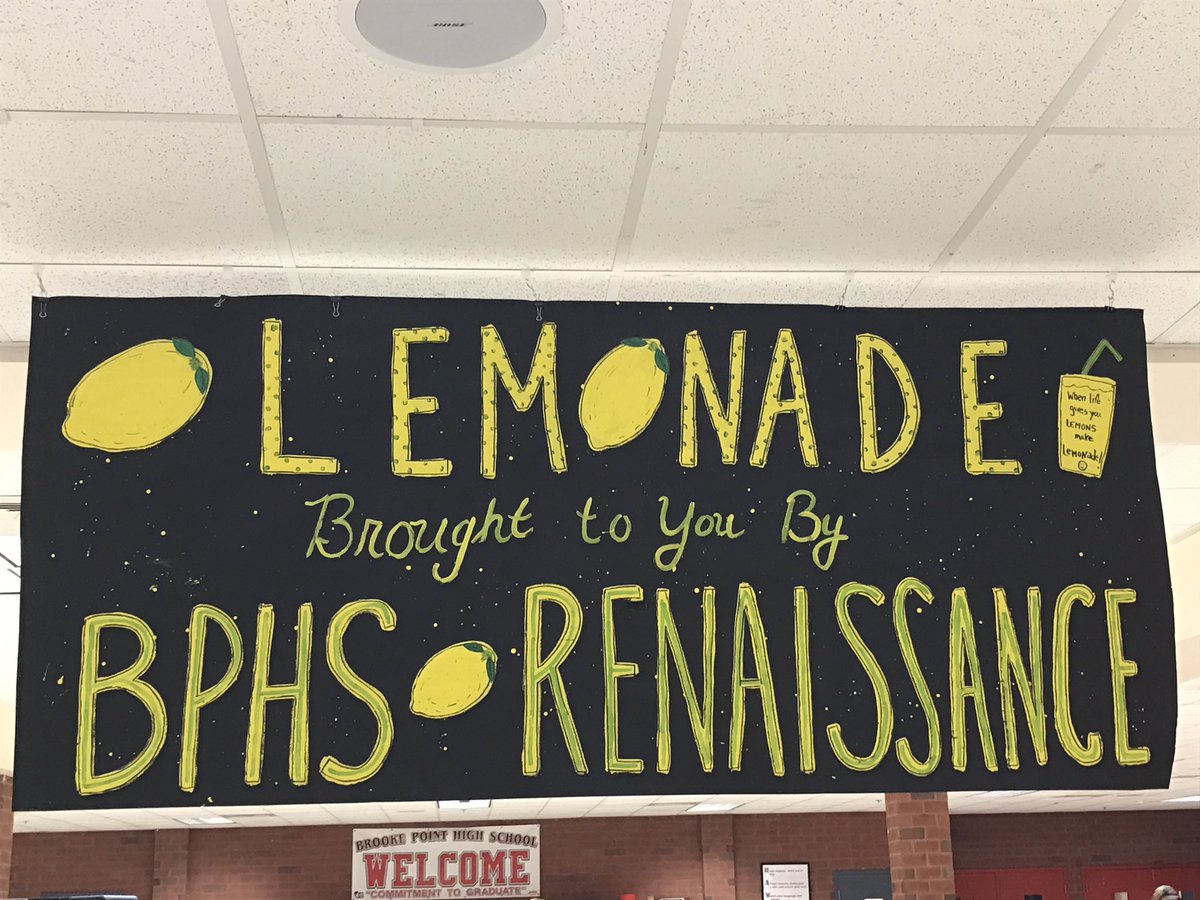 BOSE
LEMONADE
When life
gives you
LEMONS
make
LEMONade!
Brought to You By
BPHS RENAISSANCE
BROOKE POINT HIGH SCHOOL
WELCOME
"COMMITMENT TO GRADUATE"